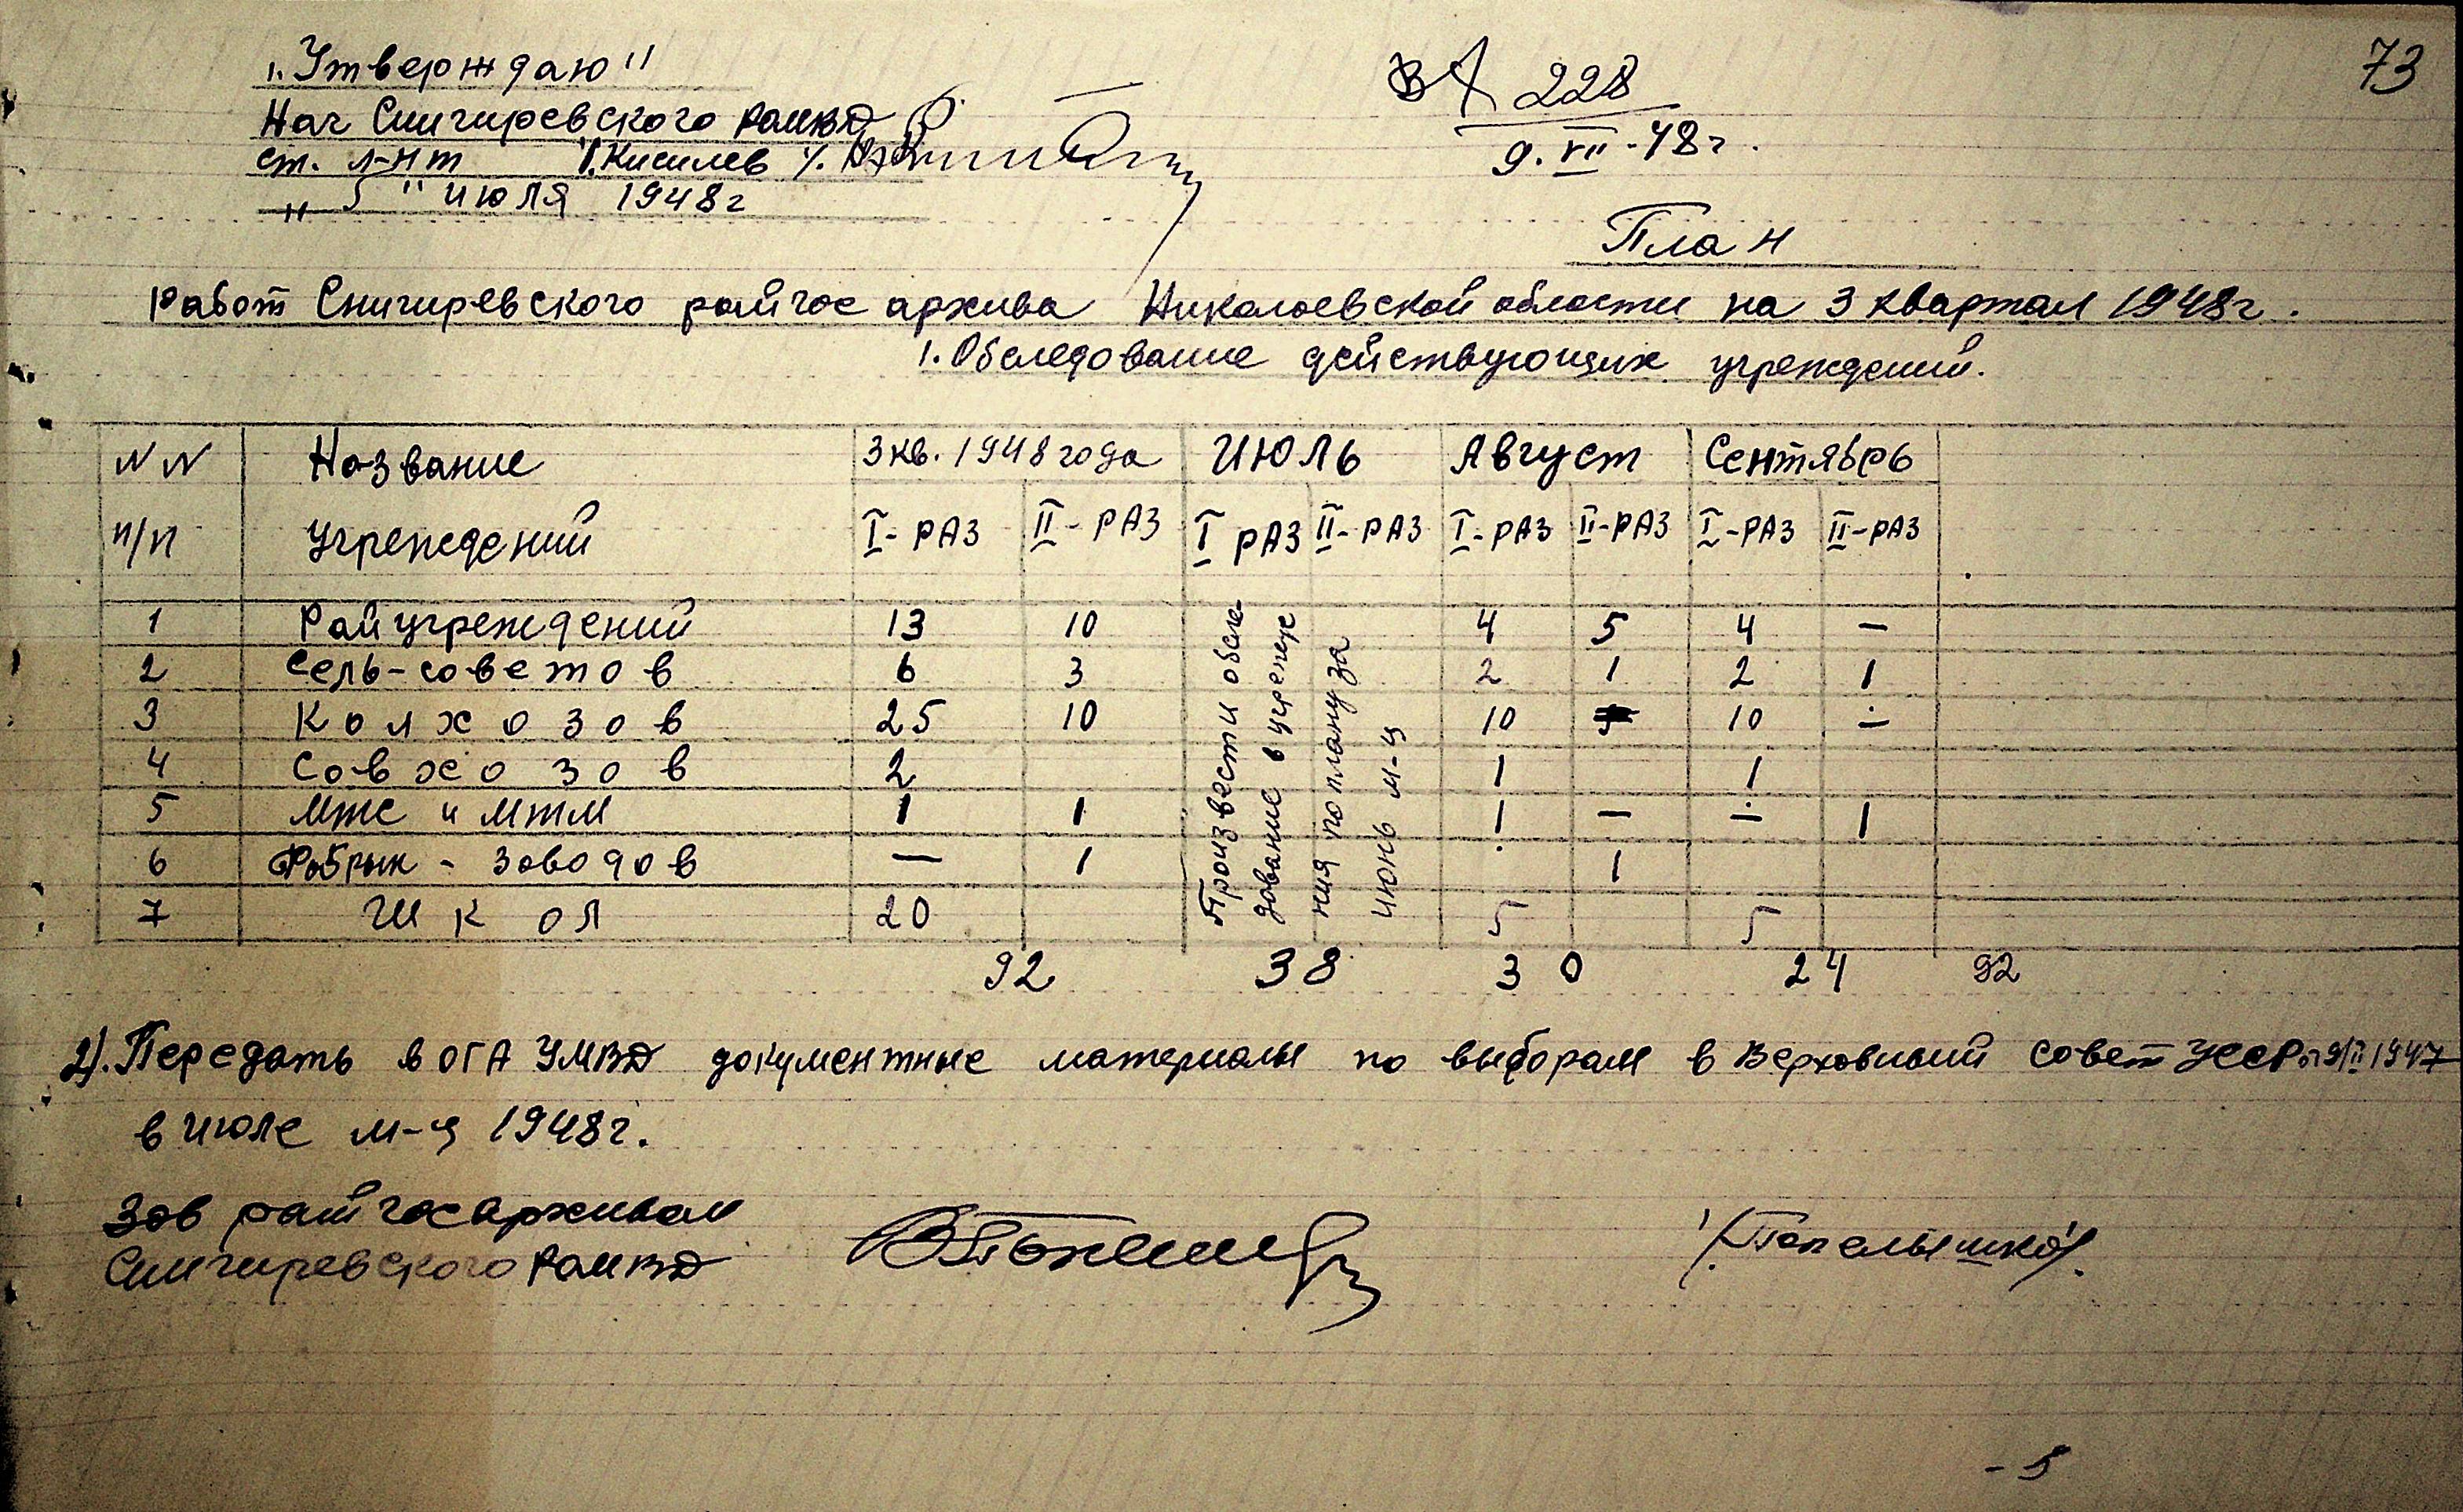 73
„Утверждаю"
Нач Снигиревского РайМВД
ст. л-нт /.Кисилев/.
„ 5 " июля 1948г
ВХ 228
9.VII-48г.
План
Работ Снигиревского райгосархива Николаевской области на 3 квартал 1948г.
1. Обследование действующих учреждений.
NN Название 3 кв. 1948 года ИЮЛЬ Август Сентябрь
п/п Учреждений I-РАЗ II-РАЗ I РАЗ II-РАЗ I-РАЗ II-РАЗ I-РАЗ II-РАЗ
Произвести обсле-
дование в учрежде
ния по плану за
июнь м-ц
1 Райучреждений 13 10 4 5 4 —
2 Сель-советов 6 3 2 1 2 1
3 Колхозов 25 10 10 10 —
4 Совхозов 2 1 1
5 МТС и МТМ 1 1 1 — — 1
6 Фабрик - Заводов — 1 1
7 Школ 20 5 5
92 38 30 24 92
2). Передать в ОГА УМВД документные материалы по выборам в Верховный совет УССР 9/II 1947
в июле м-ц 1948г.
Зав райгосархивом
Снигиревского РайМВД
/Пепелышко/.
- 5